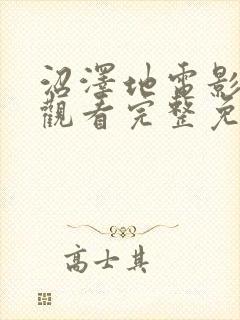 沼澤地電影
觀看完整免
高士其